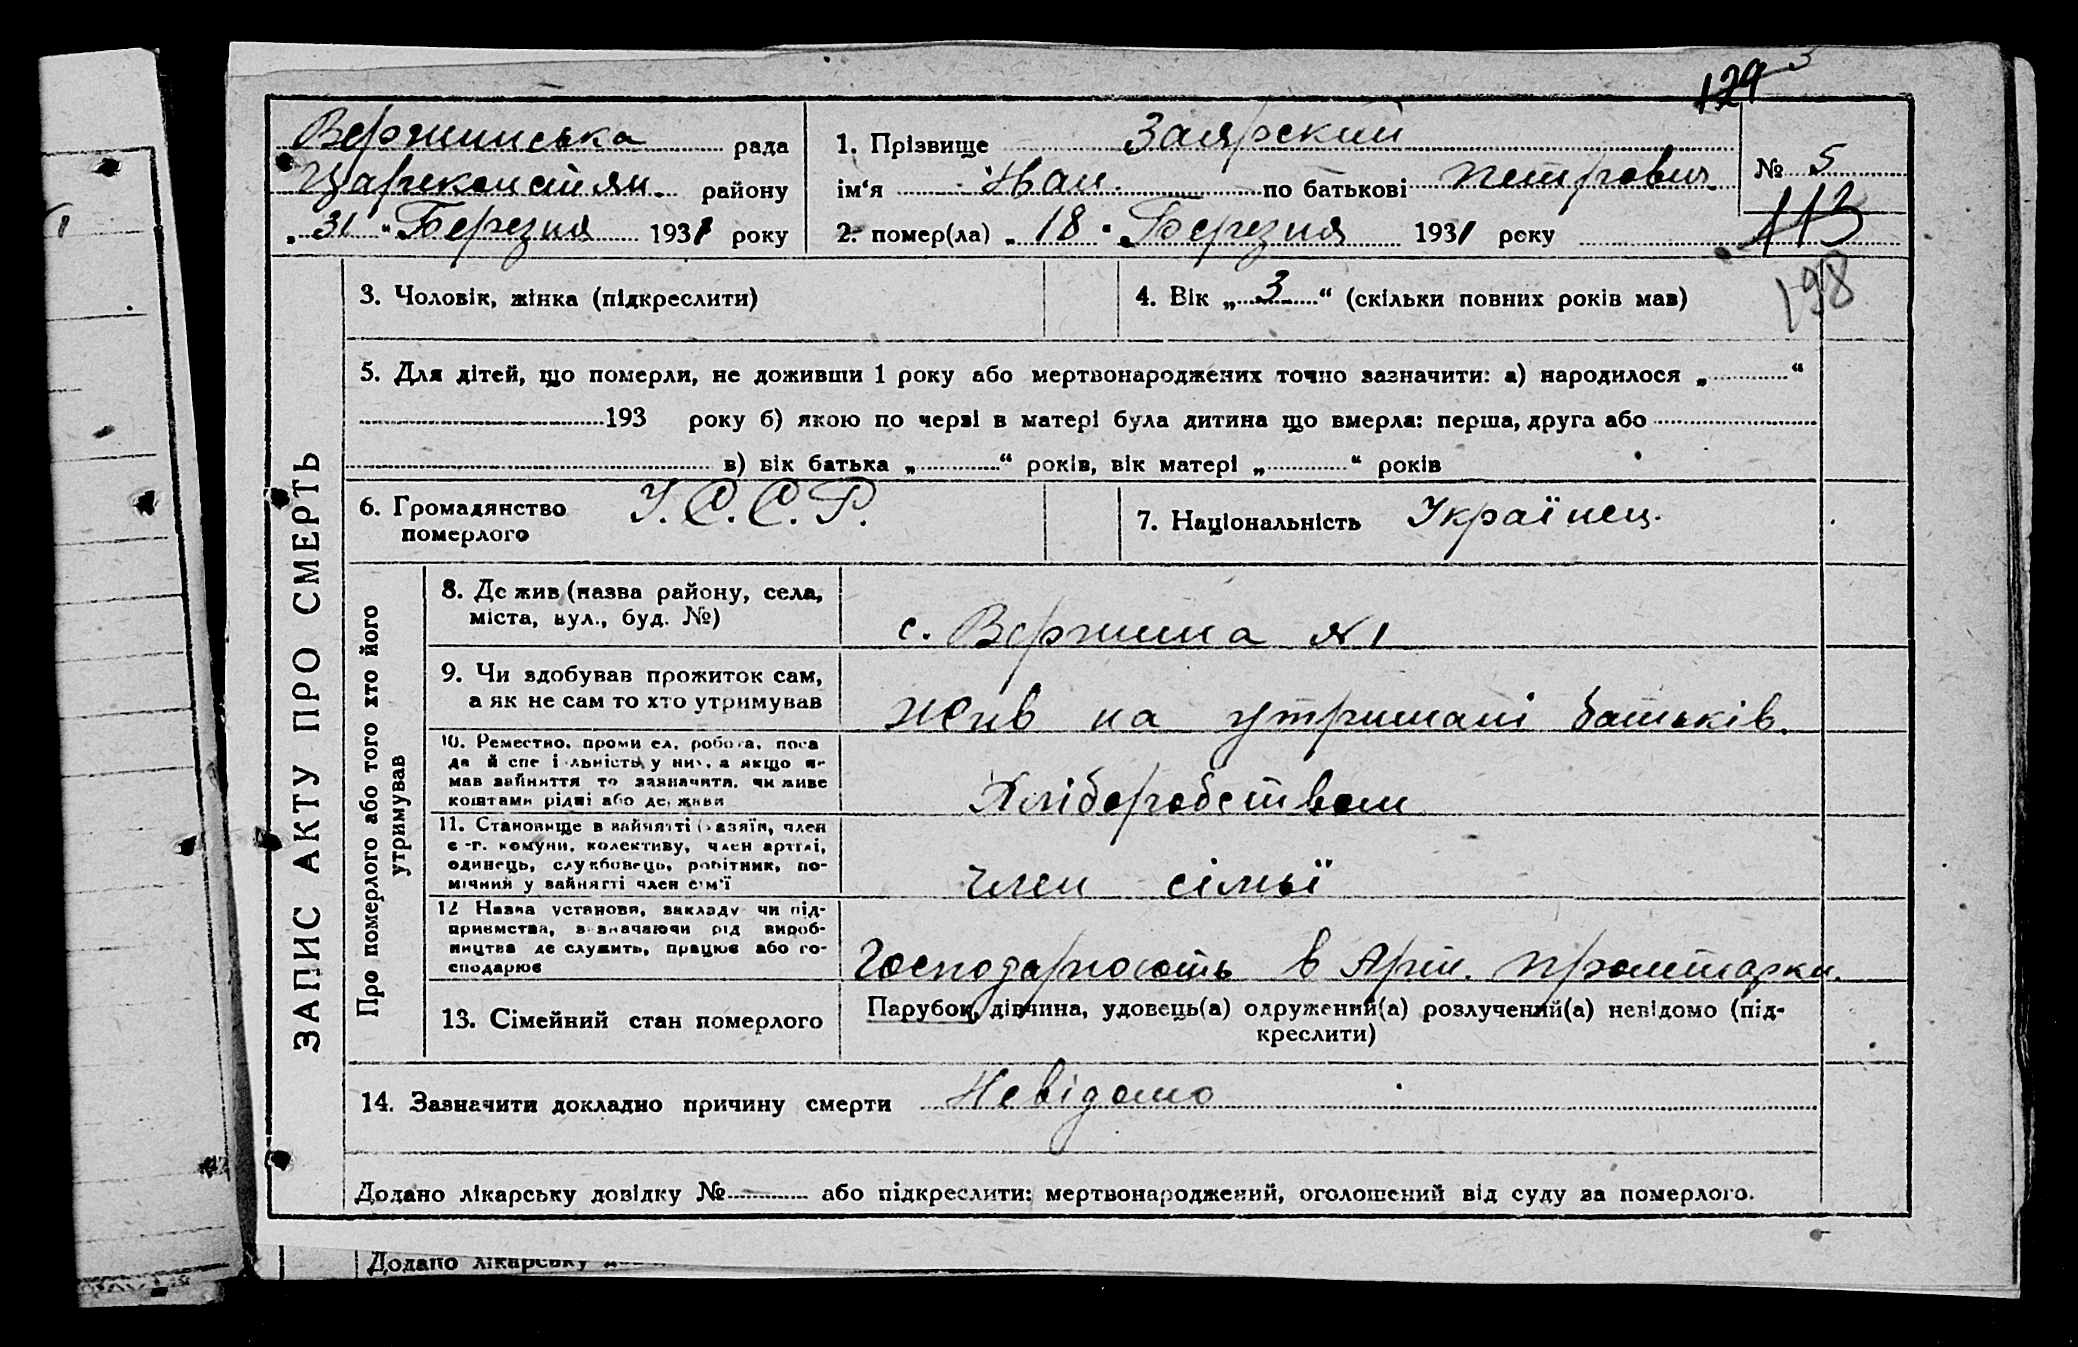 129
Вершинська рада
Царекокстян. району
„31“ Березня 1931 року
1. Прізвище Заярский
ім‘я Иван. по батькові Петрович
2. помер(ла) „18“ Березня 1931 року
№ 5
113
198
ЗАПИС АКТУ ПРО СМЕРТЬ
3. Чоловік, жінка (підкреслити)
4. Вік „3“ (скільки повних років мав)
5. Для дітей, що померли, не доживши 1 року або мертвонароджених точно зазначити: а) народилося „ “
193 року б) якою по черзі в матері була дитина що вмерла: перша, друга або
в) вік батька „ “ років, вік матері „ “ років
6. Громадянство
померлого
У.С.С.Р.
7. Національність Українец.
Про померлого або того хто його
утримував
8. Де жив (назва району, села,
міста, вул., буд. №)
с. Вершина №1
9. Чи здобував прожиток сам,
а як не сам то хто утримував
Жив на утримані батьків.
10. Ремество, роботa, поса
да й у них, а якщо не
мав зайняття то зазначити, чи живе
коштами рідні або держави
Хліборобством
11. Становище в зайнятті член
с.-г. комуни, колективу, член артілі,
одинець, службовець, робітник, по-
мічний у зайнятті член сім'ї
член сімьї
12 Назва установи, закладу чи під-
приємства, зазначаючи рід вироб-
ництва де служить, працює або го-
сподарює
Господарюють в Арт.
13. Сімейний стан померлого
Парубок, дівчина, удовець(а) одружений(а) розлучений(а) невідомо (під-
креслити)
14. Зазначити докладно причину смерти Невідомо
Додано лікарську довідку № або підкреслити: мертвонароджений, оголошений від суду за померлого.
Додано лікарську